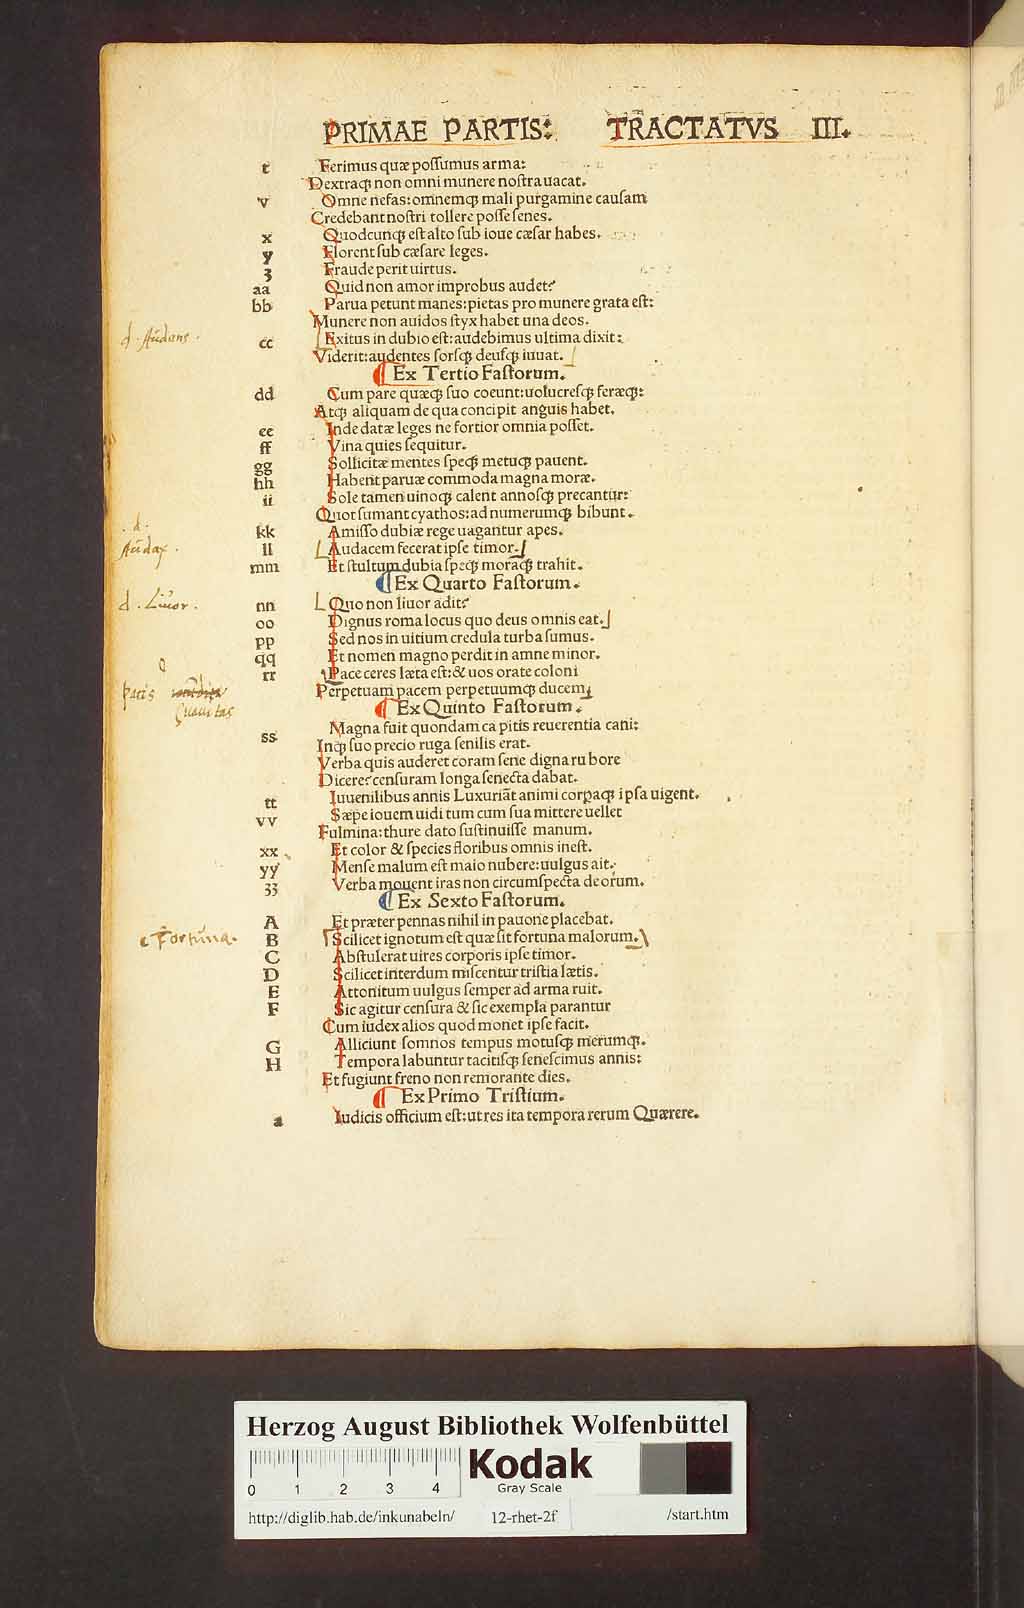 PRIMAE PARTIS: TRACTATVS III.
t Ferimus quæ possumus arma:
Dextraqꝫ non omni munere nostra uacat.
v Omne nefas: omnemqꝫ mali purgamine causam
Credebant nostri tollere posse senes.
x Quodcunqꝫ est alto sub ioue cæsar habes.
y Florent sub cæsare leges.
ʒ Fraude perit uirtus.
aa Quid non amor improbus audet?
bb Parua petunt manes: pietas pro munere grata est:
Munere non auidos styx habet una deos.
d. Audens. cc Exitus in dubio est: audebimus ultima dixit:
Viderit: audentes forsqꝫ deusqꝫ iuuat.
Ex Tertio Fastorum.
dd Cum pare quæqꝫ suo coeunt: uolucresqꝫ feræqꝫ:
Atqꝫ aliquam de qua concipit anguis habet.
ee Inde datæ leges ne fortior omnia posset.
ff Vina quies sequitur.
gg Sollicitæ mentes speqꝫ metuqꝫ pauent.
hh Habent paruæ commoda magna moræ.
ii Sole tamen uinoqꝫ calent annosqꝫ precantur:
Quot sumant cyathos: ad numerumqꝫ bibunt.
.d. kk Amisso dubiæ rege uagantur apes.
Audax. ll Audacem fecerat ipse timor.
mm Et stultum dubia speqꝫ moraqꝫ trahit.
Ex Quarto Fastorum.
d. Liuor. nn Quo non liuor adit?
oo Dignus roma locus quo deus omnis eat.
pp Sed nos in uitium credula turba sumus.
qq Et nomen magno perdit in amne minor.
rr Pace ceres læta est: & uos orate coloni
pacis
Perpetuam pacem perpetuumqꝫ ducem.
Ex Quinto Fastorum.
ss Magna fuit quondam capitis reuerentia cani:
Inqꝫ suo precio ruga senilis erat.
Verba quis auderet coram sene digna rubore
Dicere? censuram longa senecta dabat.
tt Iuuenilibus annis Luxuriãt animi corpaqꝫ ipsa uigent.
vv Sæpe iouem uidi tum cum sua mittere uellet
Fulmina: thure dato sustinuisse manum.
xx Et color & species floribus omnis inest.
yy Mense malum est maio nubere: uulgus ait.
ʒʒ Verba mouent iras non circumspecta deorum.
Ex Sexto Fastorum.
A Et præter pennas nihil in pauone placebat.
e Fortuna. B Scilicet ignotum est quæ sit fortuna malorum.
C Abstulerat uires corporis ipse timor.
D Scilicet interdum miscentur tristia lætis.
E Attonitum uulgus semper ad arma ruit.
F Sic agitur censura & sic exempla parantur
Cum iudex alios quod monet ipse facit.
G Alliciunt somnos tempus motusqꝫ merumqꝫ.
H Tempora labuntur tacitisqꝫ senescimus annis:
Et fugiunt freno non remorante dies.
Ex Primo Tristium.
a Iudicis officium est: ut res ita tempora rerum Quærere.
Herzog August Bibliothek Wolfenbüttel
0 1 2 3 4
Kodak
Gray Scale
http://diglib.hab.de/inkunabeln/ 12-rhet-2f /start.htm